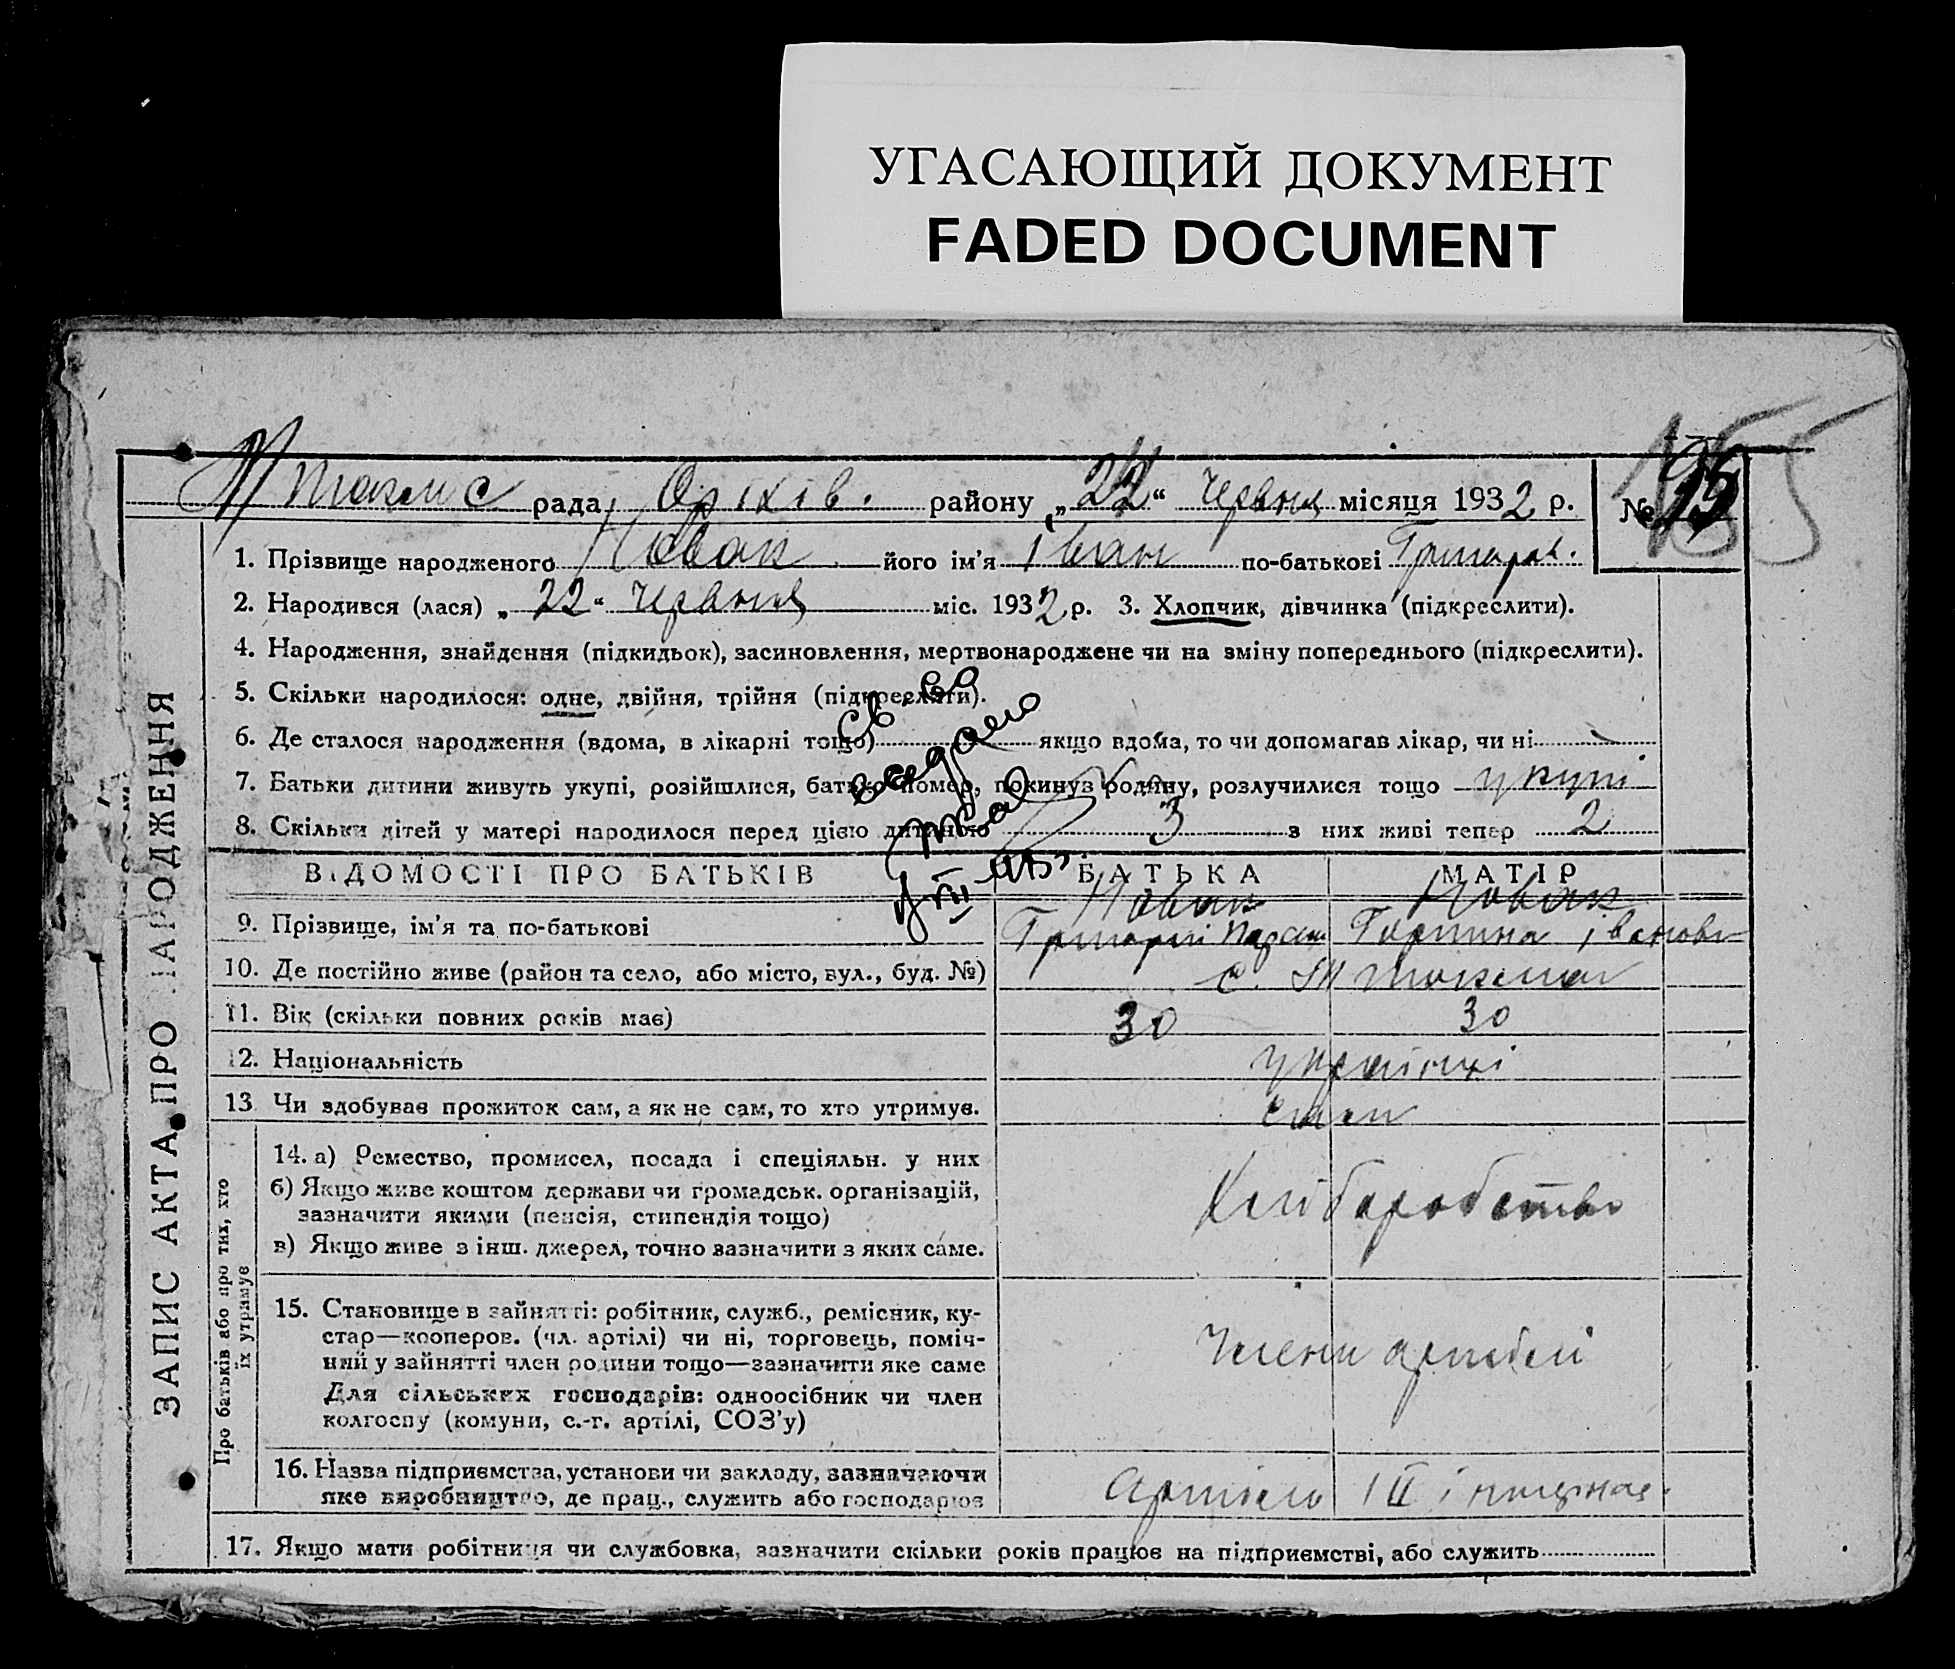 УГАСАЮЩИЙ ДОКУМЕНТ
FADED DOCUMENT
рада, Оріхів. району „22“ Червня місяця 1932 р. №
1. Прізвище народженого Новак його ім'я Іван по-батькові Григоров.
2. Народився (лася) „22“ Червня міс. 1932 р. 3. Хлопчик, дівчинка (підкреслити).
4. Народження, знайдення (підкидьок), засиновлення, мертвонароджене чи на зміну попереднього (підкреслити).
5. Скільки народилося: одне, двійня, трійня (підкреслити).
6. Де сталося народження (вдома, в лікарні тощо) якщо вдома, то чи допомагав лікар, чи ні
7. Батьки дитини живуть укупі, розійшлися, батько помер, покинув родину, розлучилися тощо укупі
8. Скільки дітей у матері народилося перед цією дитиною 3 з них живі тепер 2
ВІДОМОСТІ ПРО БАТЬКІВ БАТЬКА МАТІР
Новак Новак
9. Прізвище, ім'я та по-батькові Григорій
10. Де постійно живе (район та село, або місто, вул., буд. №) с.
11. Вік (скільки повних років має) 30 30
12. Національність українці
13 Чи здобуває прожиток сам, а як не сам, то хто утримує. сами
14. а) Ремество, промисел, посада і спеціяльн. у них
б) Якщо живе коштом держави чи громадськ. організацій,
зазначити якими (пенсія, стипендія тощо)
в) Якщо живе з інш. джерел, точно зазначити з яких саме.
Хліборобство
15. Становище в зайнятті: робітник, служб., ремісник, ку-
стар—кооперов. (чл. артілі) чи ні, торговець, поміч-
ний у зайнятті член родини тощо—зазначити яке саме
Для сільських господарів: одноосібник чи член
колгоспу (комуни, с.-г. артілі, СОЗ'у)
Члени артілі
16. Назва підприємства, установи чи закладу, зазначаючи
яке виробництво, де прац., служить або господарює
Артіль
17. Якщо мати робітниця чи службовка, зазначити скільки років працює на підприємстві, або служить
ЗАПИС АКТА ПРО НАРОДЖЕННЯ
Про батьків або про тих, хто
їх утримує